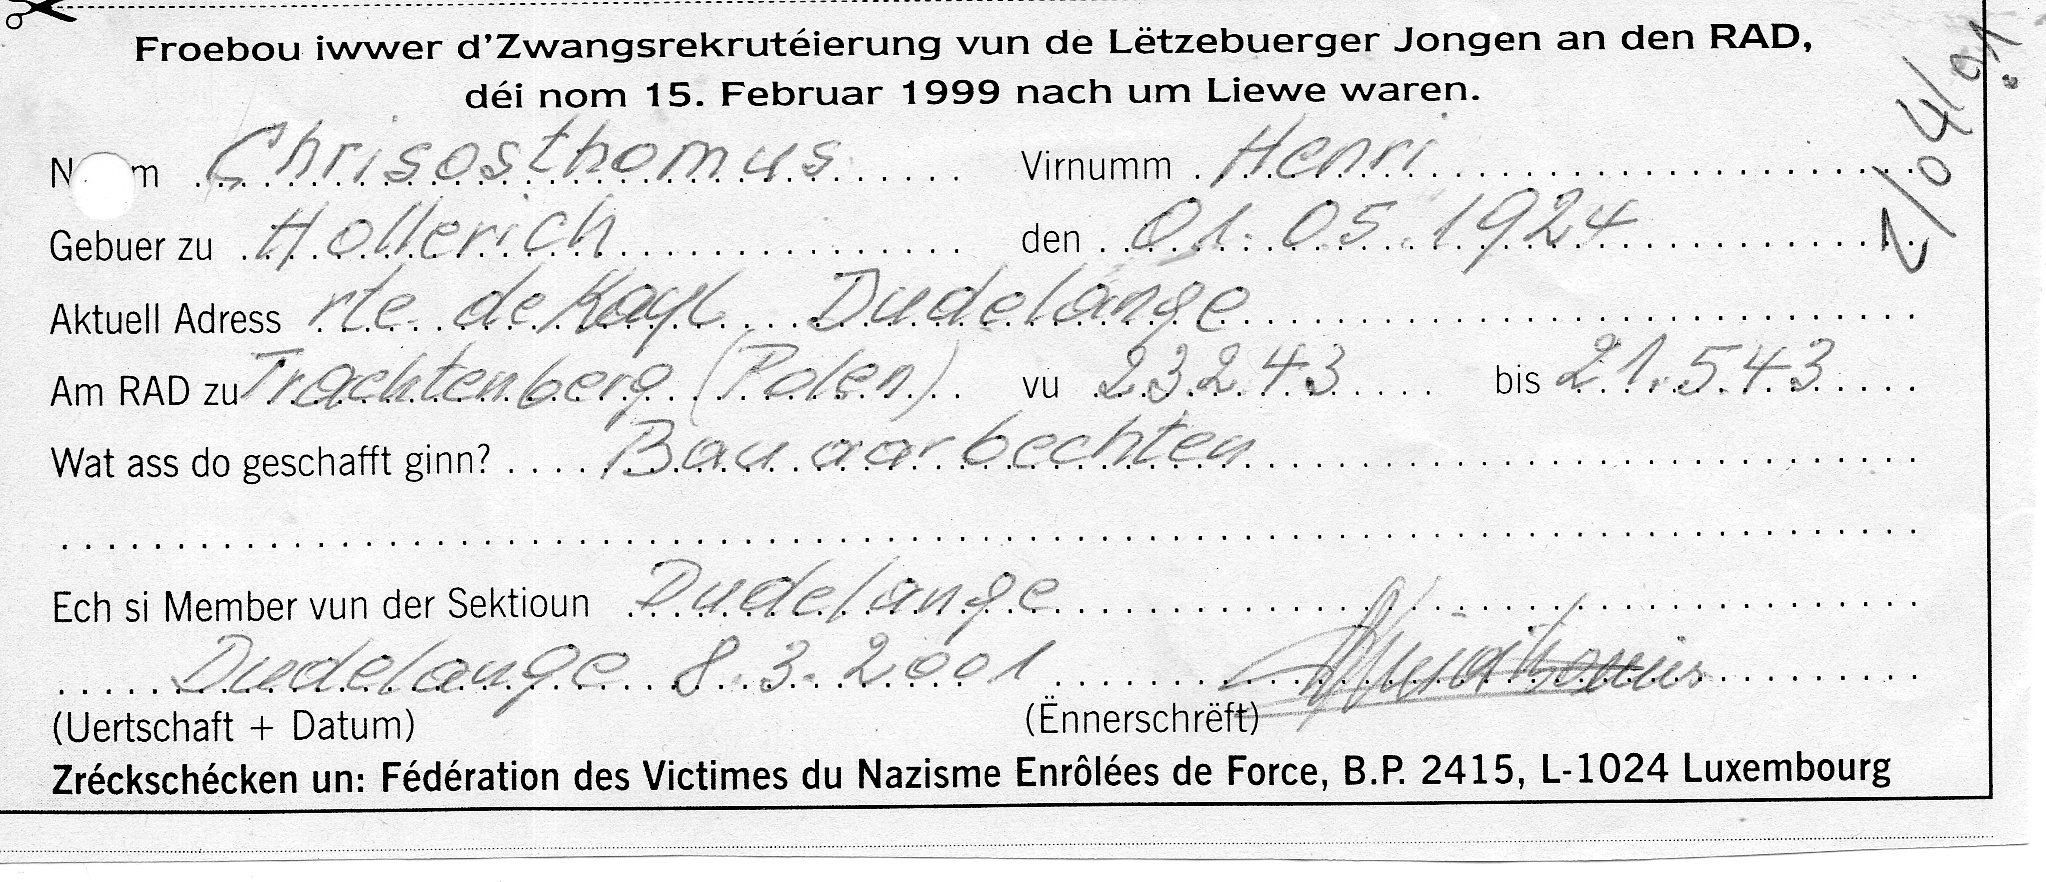 Froebou iwwer d'Zwangsrekrutéierung vun de Lëtzebuerger Jongen an den RAD,
déi nom 15. Februar 1999 nach um Liewe waren.
N m Chrisosthomus Virnumm Henri
Gebuer zu Hollerich den 01.05.1924
Aktuell Adress rte de Kayl Dudelange
Am RAD zu Trachtenberg (Polen) vu 23.2.43 bis 21.5.43
Wat ass do geschafft ginn? Bauaarbechten
Ech si Member vun der Sektioun Dudelange
Dudelange 8.3.2001
(Uertschaft + Datum) (Ënnerschrëft)
Zréckschécken un: Fédération des Victimes du Nazisme Enrôlées de Force, B.P. 2415, L-1024 Luxembourg